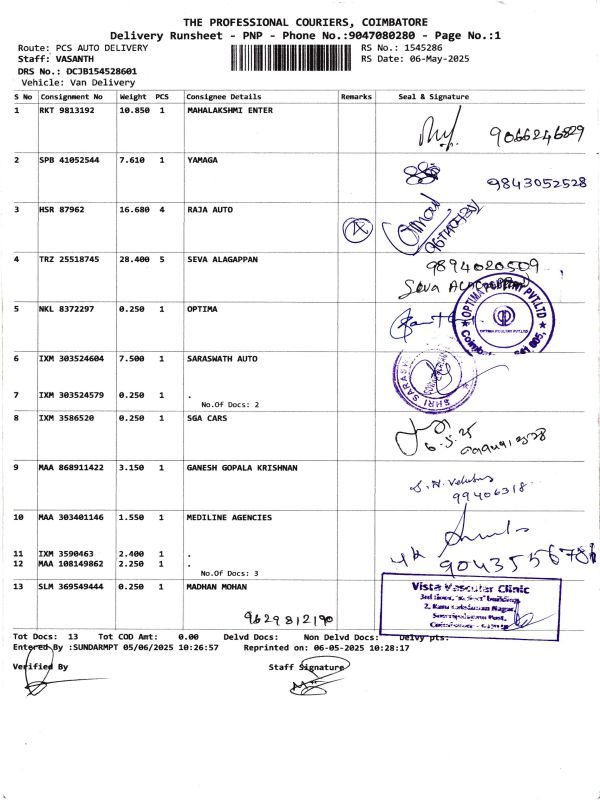 THE PROFESSIONAL COURIERS, COIMBATORE
Delivery Runsheet - PNP - Phone No.:9047080280 - Page No.:1
Route: PCS AUTO DELIVERY RS No.: 1545286
Staff: VASANTH RS Date: 06-May-2025
DRS No.: DCJB154528601
Vehicle: Van Delivery
S No Consignment No Weight PCS Consignee Details Remarks Seal & Signature
1 RKT 9813192 10.850 1 MAHALAKSHMI ENTER
9066246829
2 SPB 41052544 7.610 1 YAMAGA
9843052528
3 HSR 87962 16.680 4 RAJA AUTO
4 TRZ 25518745 28.400 5 SEVA ALAGAPPAN
9894020509
Seva
5 NKL 8372297 0.250 1 OPTIMA
OPTIMA POULTRY PVT.LTD
OPTIMA POULTRY PVT.LTD
6 IXM 303524604 7.500 1 SARASWATH AUTO
SHRI SARASW
7 IXM 303524579 0.250 1 .
No.Of Docs: 2
8 IXM 3586520 0.250 1 SGA CARS
6.5.25
9 MAA 868911422 3.150 1 GANESH GOPALA KRISHNAN
99406318
10 MAA 303401146 1.550 1 MEDILINE AGENCIES
11 IXM 3590463 2.400 1 .
12 MAA 108149862 2.250 1 .
No.Of Docs: 3
13 SLM 369549444 0.250 1 MADHAN MOHAN
9629812190
Vista Vascular Clinic
Tot Docs: 13 Tot COD Amt: 0.00 Delvd Docs: Non Delvd Docs: Delvy pts:
Entered By :SUNDARMPT 05/06/2025 10:26:57 Reprinted on: 06-05-2025 10:28:17
Verified By Staff Signature